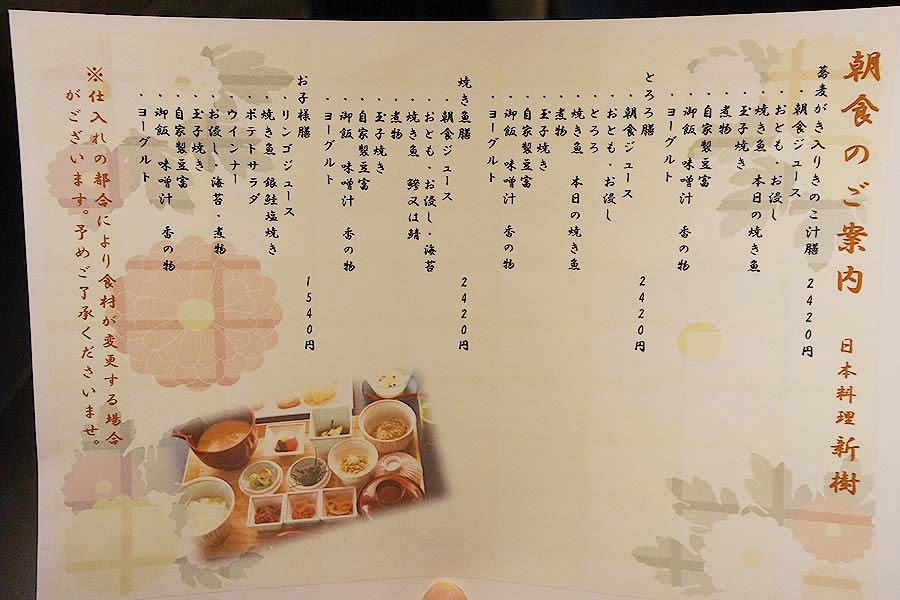 朝食のご案内　日本料理 新樹
蕎麦がき入りきのこ汁膳　2420円
・朝食ジュース
・おとも・お浸し
・焼き魚　本日の焼き魚
・玉子焼き
・煮物
・自家製豆富
・御飯　味噌汁　香の物
・ヨーグルト
とろろ膳　2420円
・朝食ジュース
・おとも・お浸し
・とろろ
・焼き魚　本日の焼き魚
・煮物
・玉子焼き
・自家製豆富
・御飯　味噌汁　香の物
・ヨーグルト
焼き魚膳　2420円
・朝食ジュース
・おとも・お浸し・海苔
・焼き魚　鯵又は鯖
・煮物
・玉子焼き
・自家製豆富
・御飯　味噌汁　香の物
・ヨーグルト
お子様膳　1540円
・リンゴジュース
・焼き魚　銀鮭塩焼き
・ポテトサラダ
・ウインナー
・お浸し・海苔・煮物
・玉子焼き
・自家製豆富
・御飯　味噌汁　香の物
・ヨーグルト
※仕入れの都合により食材が変更する場合
がございます。予めご了承くださいませ。